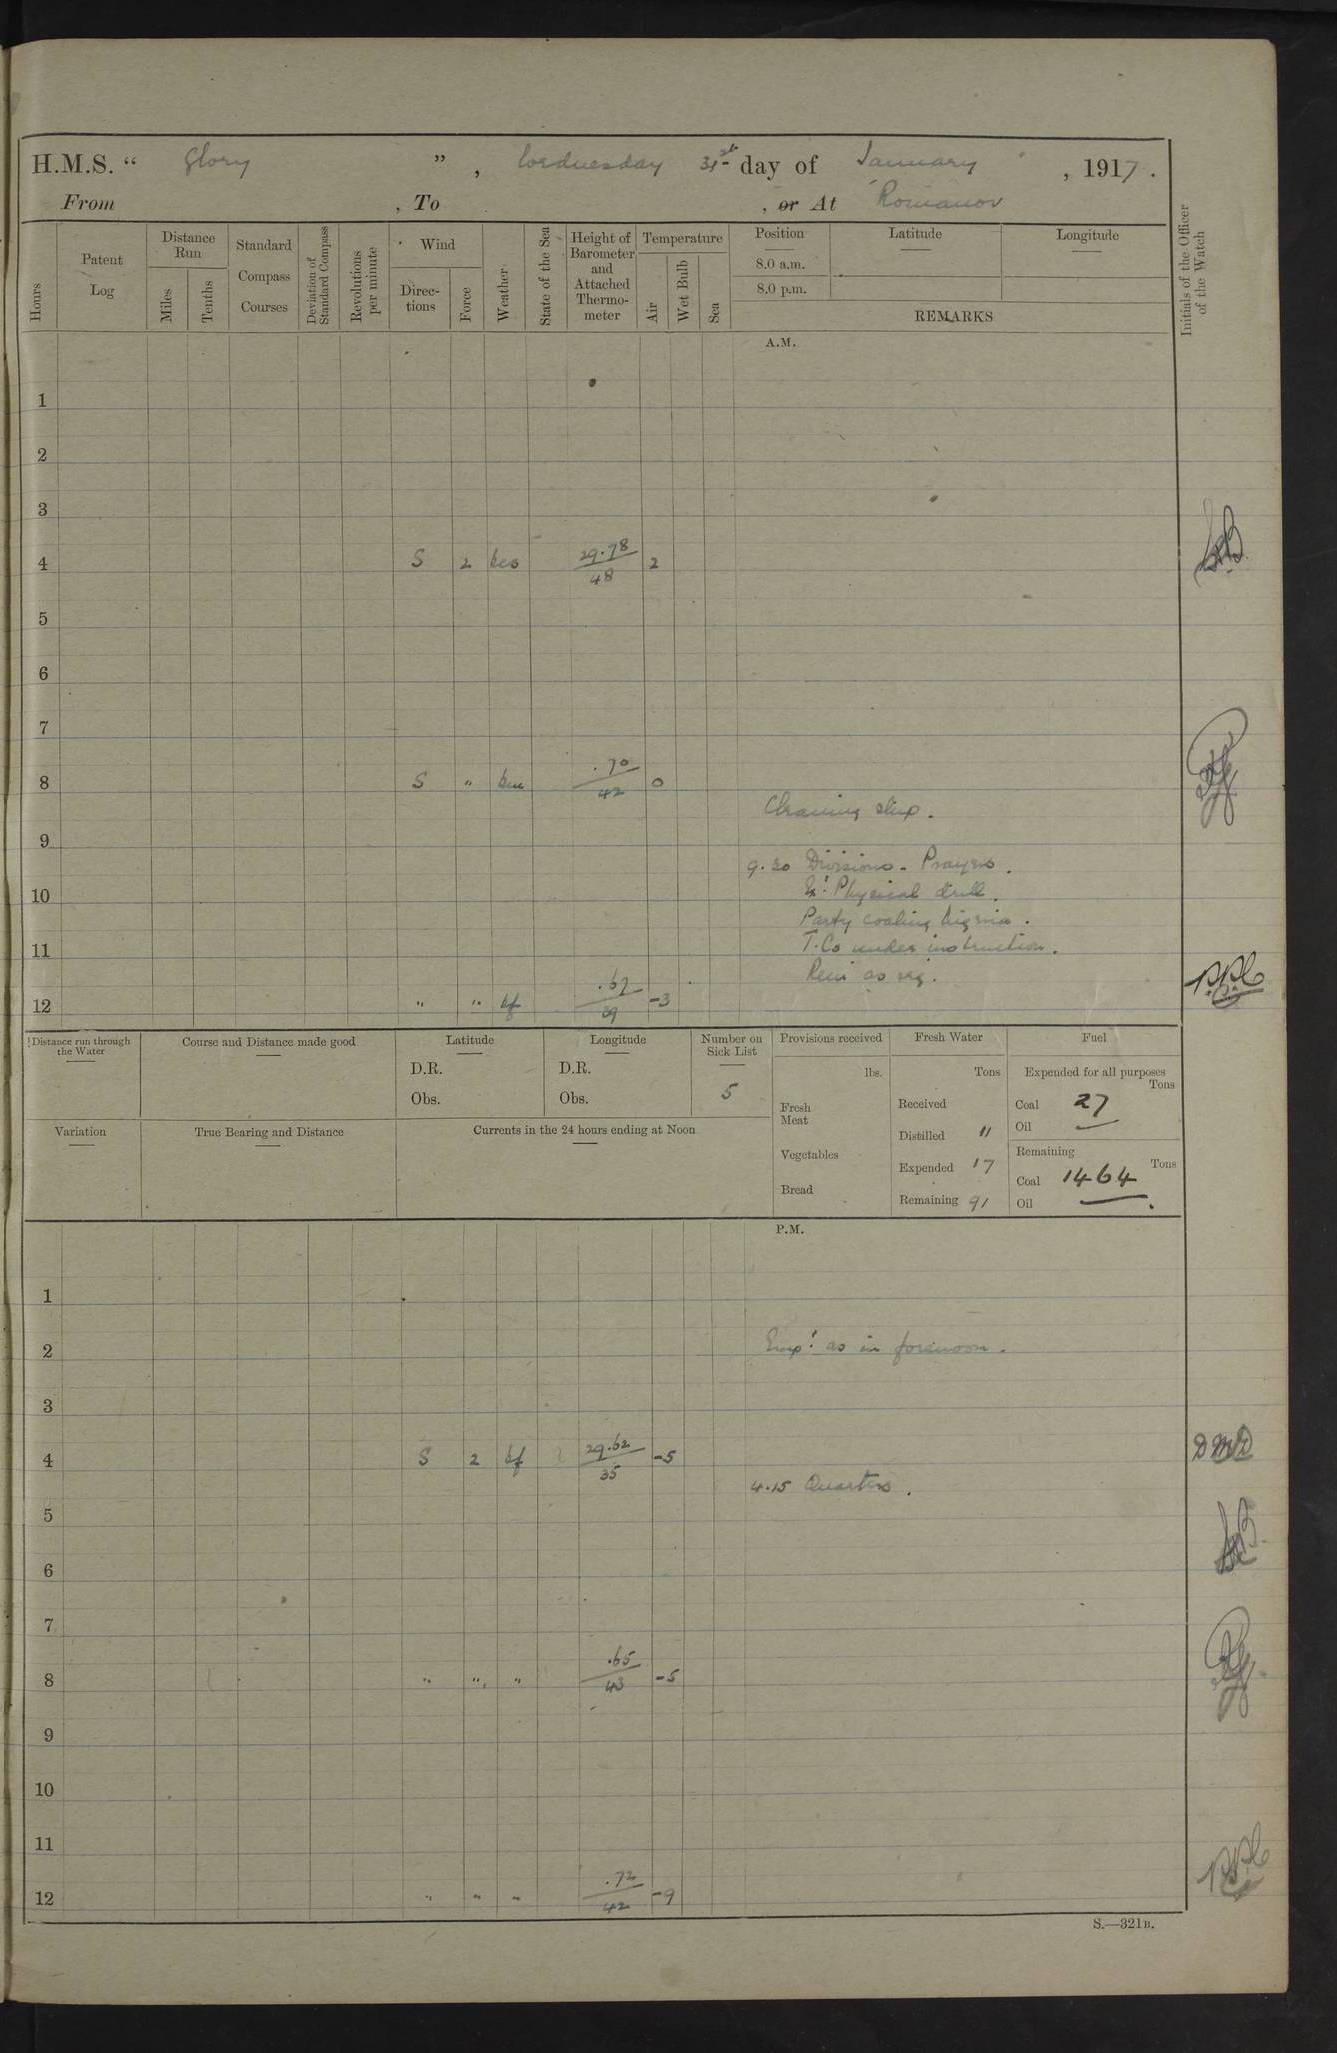 H.M.S. “ Glory ” , Wednesday 31st day of January , 1917 .
From , To , or At Romanov
Hours
Patent Log
Distance Run
Miles
Tenths
Standard Compass Courses
Deviation of Standard Compass
Revolutions per minute
Wind
Directions
Force
Weather
State of the Sea
Height of Barometer and Attached Thermometer
Temperature
Air
Wet Bulb
Sea
Position
8.0 a.m.
8.0 p.m.
Latitude
Longitude
REMARKS
Initials of the Officer of the Watch
A.M.
1
2
3
4 S 2 29.78 48 2
5
6
7
8 S " .70 42 0
Cleaning ship.
9
9.20 Divisions - Prayers.
Physical drill.
10
Party coaling
T.Co under instruction.
11
Rem as req.
12 " " bf 39 -3
Distance run through the Water
Course and Distance made good
Latitude
D.R.
Obs.
Longitude
D.R.
Obs.
Number on Sick List
5
Provisions received
lbs.
Fresh Meat
Vegetables
Bread
Fresh Water
Tons
Received
Distilled 11
Expended 17
Remaining 91
Fuel
Expended for all purposes
Tons
Coal 27
Oil —
Remaining
Tons
Coal 1464
Oil —
Variation
True Bearing and Distance
Currents in the 24 hours ending at Noon
P.M.
1
2 Emp! as in forenoon.
3
4 S 2 bf 29.62 35 -5 DMD
4.15 Quarters.
5
6
7
8 " " " .65 43 -5
9
10
11
12 " " " .72 42 -9
S.—321B.